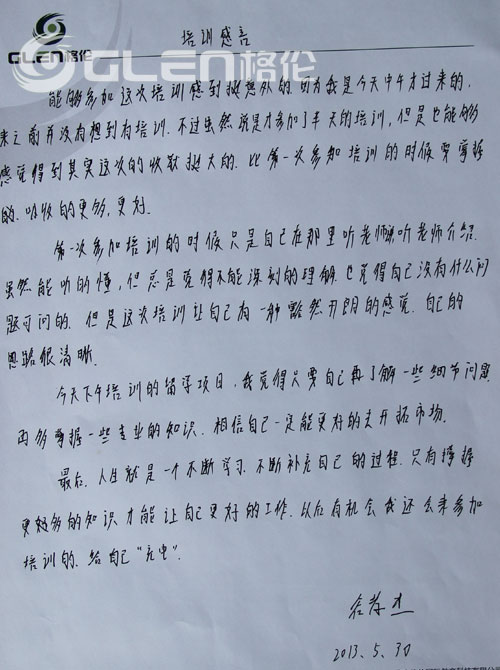 GLEN格伦
GLEN格伦
培训感言
能够参加这次培训感到挺意外的.因为我是今天中午才过来的,
来之前并没有想到有培训.不过虽然说是才参加了半天的培训,但是也能够
感觉得到其实这次的收获挺大的.比第一次参加培训的时候要掌握
的.吸收的更多,更好.
第一次参加培训的时候只是自己在那里听老师听老师介绍.
虽然能听的懂,但总是觉得不能深刻的理解.也觉得自己没有什么问
题可问的.但是这次培训让自己有一种豁然开朗的感觉.自己的
思路很清晰.
今天下午培训的留学项目,我觉得只要自己再了解一些细节问题.
再多掌握一些专业的知识.相信自己一定能更好的去开拓市场.
最后.人生就是一个不断学习.不断补充自己的过程.只有掌握
更多的知识才能让自己更好的工作.以后有机会我还会来参加
培训的.给自己“充电”.
2013.5.30